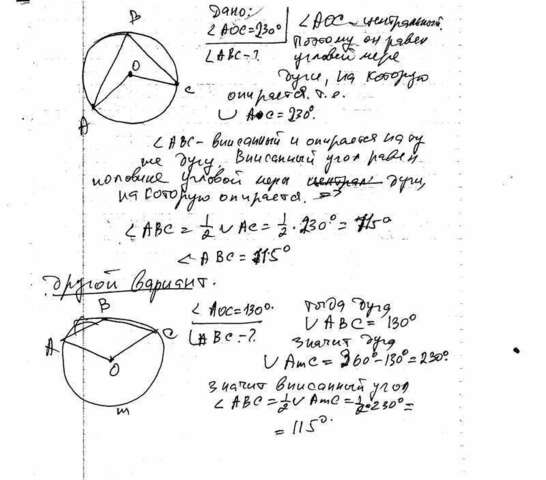 Дано:
∠AOC=230°
∠ABC-?
∠AOC - центральный.
Поэтому он равен
угловой мере
дуги, на которую
опирается. т.е.
∪ AOC=230°.
∠ABC - вписанный и опирается на ту
же дугу. Вписанный угол равен
половине угловой меры централ дуги,
на которую опирается. =>
∠ABC = 1/2 ∪ AC = 1/2 · 230° = 115°
∠ABC = 115°
B
O
A
C
другой вариант.
B
A
C
O
m
∠AOC=130°.
∠ABC-?
тогда дуга
∪ ABC = 130°
значит дуга
∪ AmC = 360°-130°=230°.
значит вписанный угол
∠ABC = 1/2 ∪ AmC = 1/2 · 230° =
= 115°.